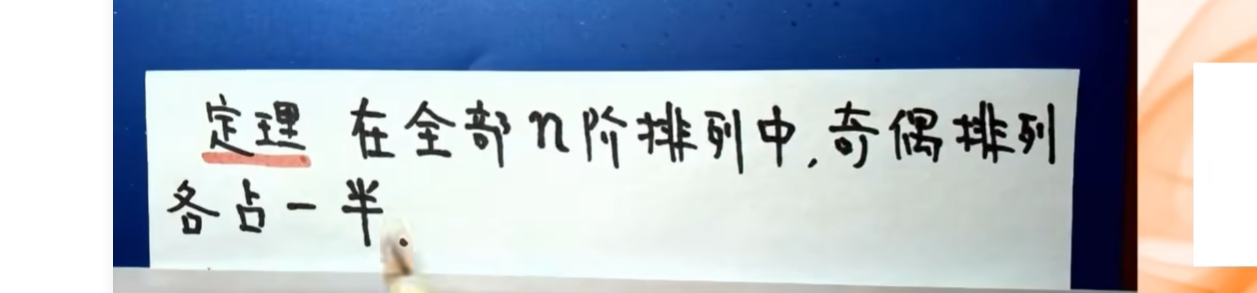 定理 在全部n阶排列中,奇偶排列
各占一半.